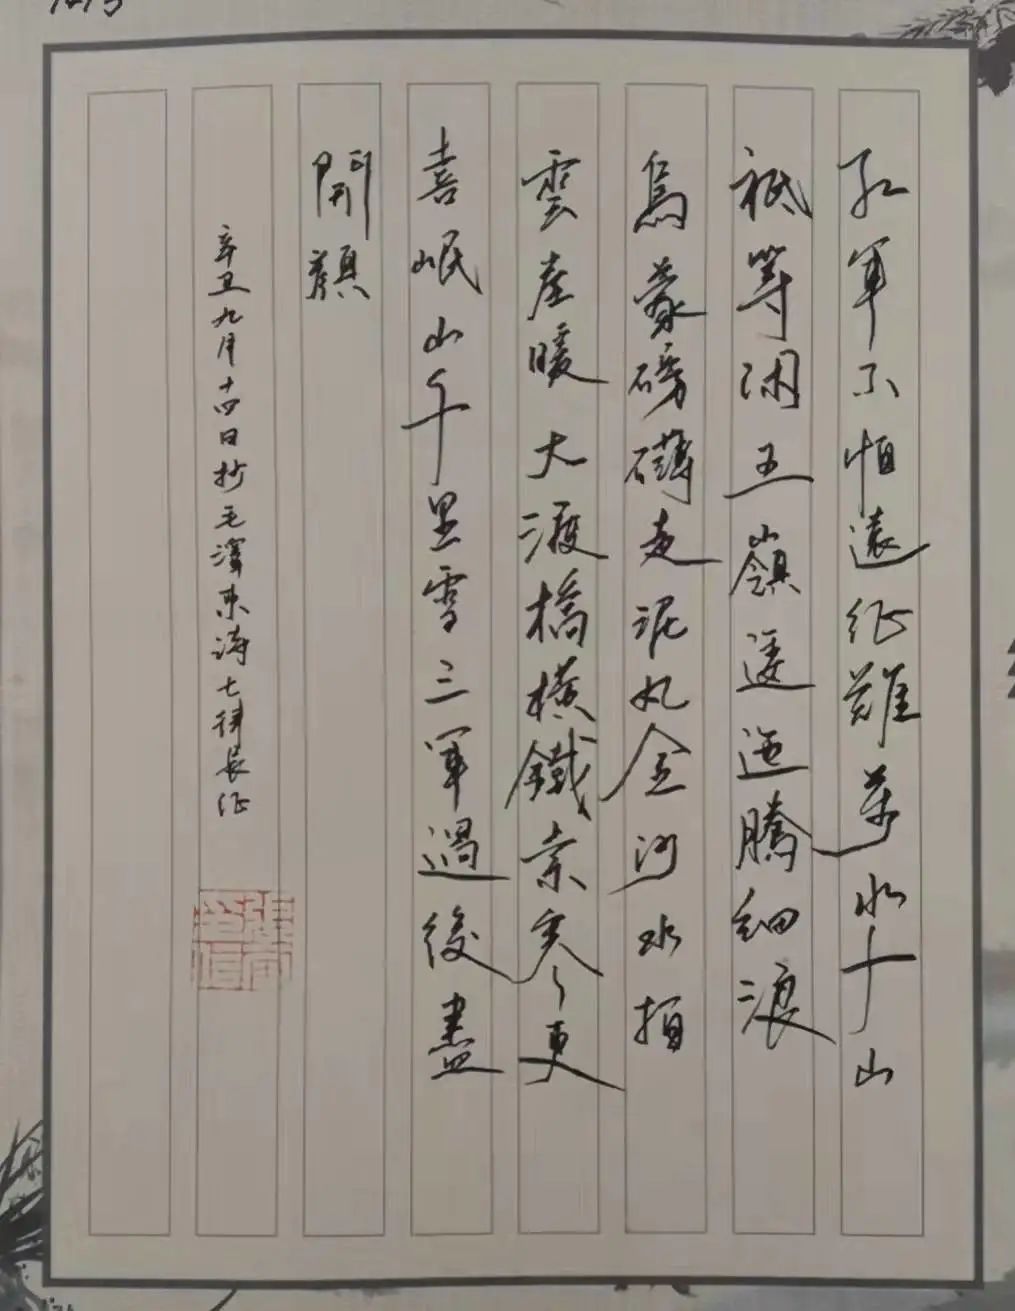 紅軍不怕遠征難萬水千山
祗等闲五嶺逶迤騰細浪
烏蒙磅礴走泥丸金沙水拍
雲崖暖大渡橋橫鐵索寒更
喜岷山千里雪三軍過後盡
開顏
辛丑九月十四日抄毛澤東詩七律長征